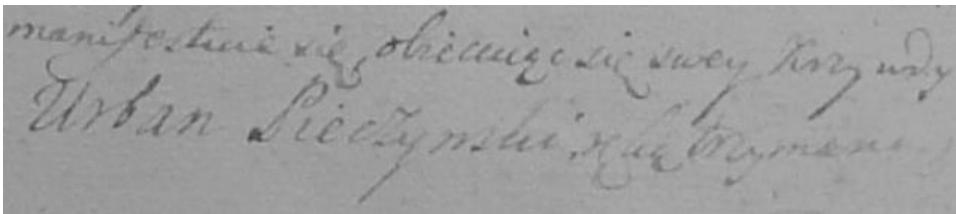 manifestuie się, obiecuiąc się swey Krzywdy
Urban Pieczynski